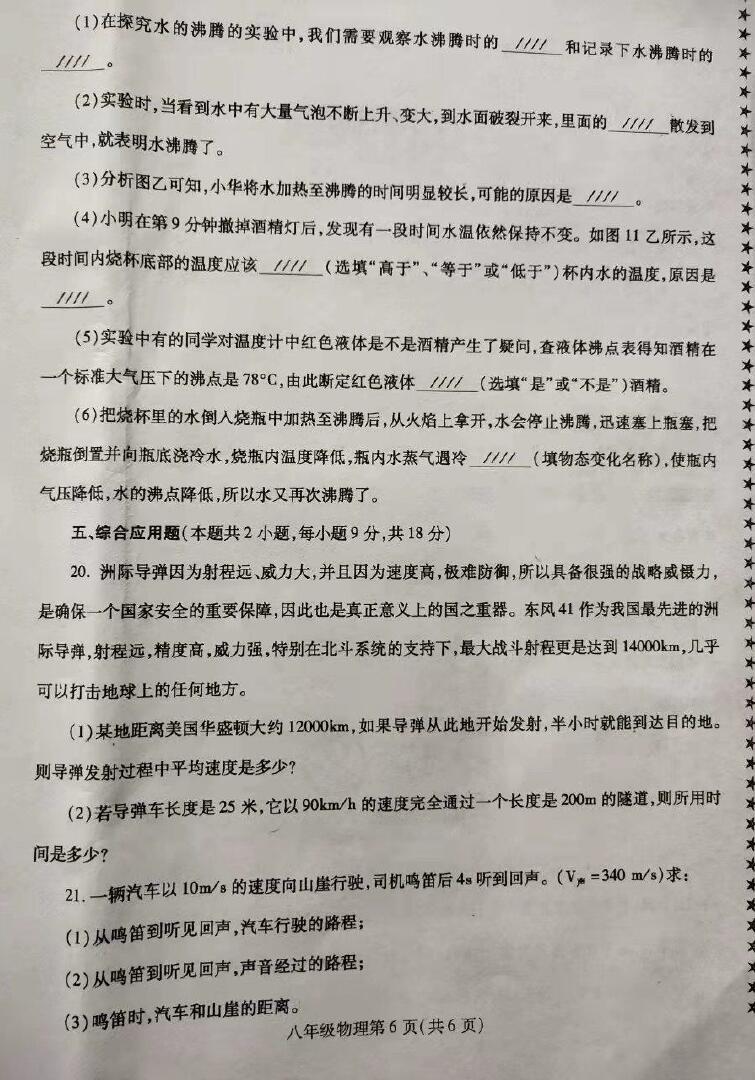 (1)在探究水的沸腾的实验中,我们需要观察水沸腾时的 //// 和记录下水沸腾时的
////。
(2)实验时,当看到水中有大量气泡不断上升、变大,到水面破裂开来,里面的 //// 散发到
空气中,就表明水沸腾了。
(3)分析图乙可知,小华将水加热至沸腾的时间明显较长,可能的原因是 ////。
(4)小明在第9分钟撤掉酒精灯后,发现有一段时间水温依然保持不变。如图11乙所示,这
段时间内烧杯底部的温度应该 //// (选填“高于”、“等于”或“低于”)杯内水的温度,原因是
////。
(5)实验中有的同学对温度计中红色液体是不是酒精产生了疑问,查液体沸点表得知酒精在
一个标准大气压下的沸点是78°C,由此断定红色液体 //// (选填“是”或“不是”)酒精。
(6)把烧杯里的水倒入烧瓶中加热至沸腾后,从火焰上拿开,水会停止沸腾,迅速塞上瓶塞,把
烧瓶倒置并向瓶底浇冷水,烧瓶内温度降低,瓶内水蒸气遇冷 //// (填物态变化名称),使瓶内
气压降低,水的沸点降低,所以水又再次沸腾了。
五、综合应用题(本题共2小题,每小题9分,共18分)
20. 洲际导弹因为射程远、威力大,并且因为速度高,极难防御,所以具备很强的战略威慑力,
是确保一个国家安全的重要保障,因此也是真正意义上的国之重器。东风41作为我国最先进的洲
际导弹,射程远,精度高,威力强,特别在北斗系统的支持下,最大战斗射程更是达到14000km,几乎
可以打击地球上的任何地方。
(1)某地距离美国华盛顿大约12000km,如果导弹从此地开始发射,半小时就能到达目的地。
则导弹发射过程中平均速度是多少?
(2)若导弹车长度是25米,它以90km/h的速度完全通过一个长度是200m的隧道,则所用时
间是多少?
21. 一辆汽车以10m/s的速度向山崖行驶,司机鸣笛后4s听到回声。(V声=340 m/s)求:
(1)从鸣笛到听见回声,汽车行驶的路程;
(2)从鸣笛到听见回声,声音经过的路程;
(3)鸣笛时,汽车和山崖的距离。
八年级物理第6页(共6页)